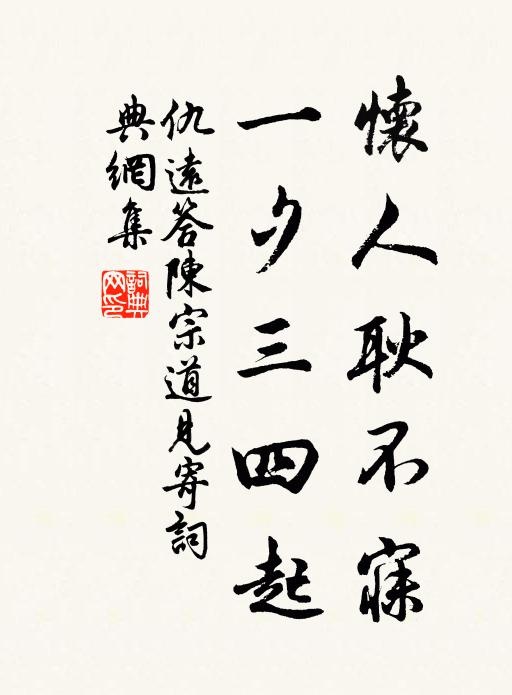 懷人耿不寐
一夕三四起
仇遠答陳宗道見寄詞
典網集
詞典网印